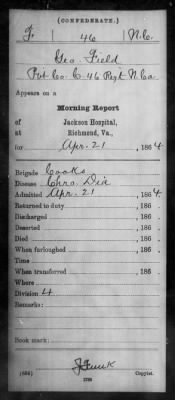 (CONFEDERATE.)
F. 46 N.C.
Geo. Field
Pvt Co. C. 46 Regt N. Ca.
Appears on a
Morning Report
of Jackson Hospital,
at Richmond, Va.,
for Apr. 21, 1864.
Brigade Cooks
Disease Chro. Dia
Admitted Apr. 21, 1864.
Returned to duty, 186 .
Discharged, 186 .
Deserted, 186 .
Died, 186 .
When furloughed, 186 .
Time
When transferred, 186 .
Where
Division 4
Remarks:
Book mark:
Copyist.